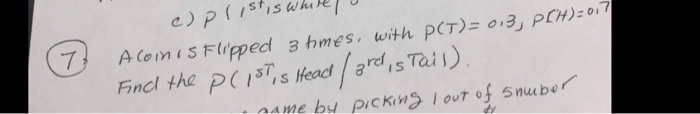 c) P( 1st, is white
7. A Coin is Flipped 3 times. with P(T)= 0.3, P(H)=0.7
Find the P( 1ST, is Head / 3rd, is Tail).
game by picking 1 out of 5 number